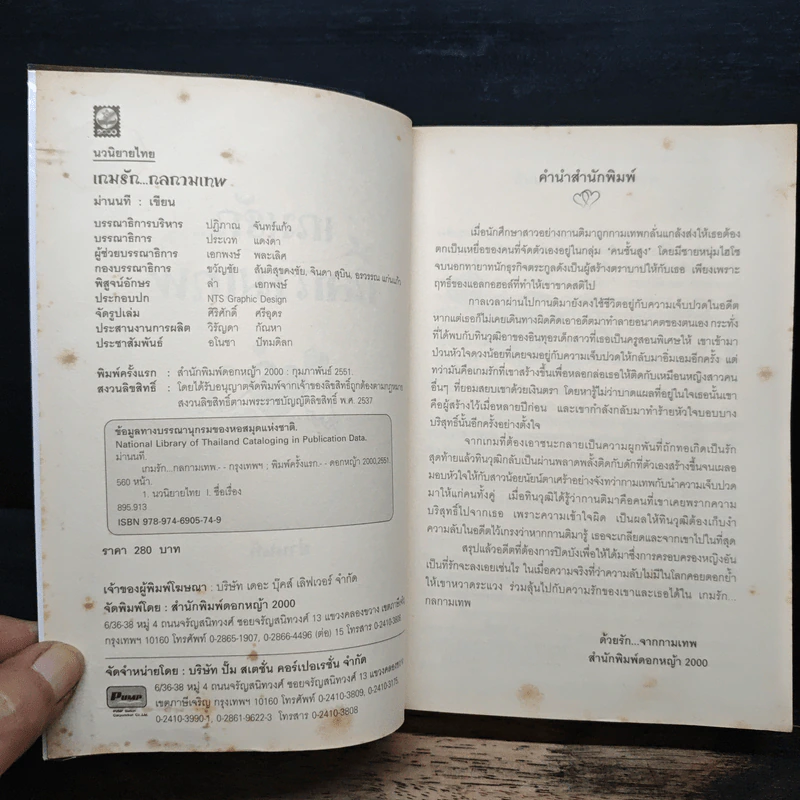 นวนิยายไทย
เกมรัก...กลกามเทพ
ม่านนที : เขียน
บรรณาธิการบริหาร ปฏิภาณ จันทร์แก้ว
บรรณาธิการ ประเวท แดงดา
ผู้ช่วยบรรณาธิการ เอกพงษ์ พละเลิศ
กองบรรณาธิการ ขวัญชัย สันติสุขคงชัย, จินดา สุบิน, อรวรรณ แก่นแก้ว
พิสูจน์อักษร ลำ เอกพงษ์
ประกอบปก NTS Graphic Design
จัดรูปเล่ม ศิริศักดิ์ ศรีอุดร
ประสานงานการผลิต วิรัญดา กัณหา
ประชาสัมพันธ์ อโนชา ปัทมดิลก
พิมพ์ครั้งแรก : สำนักพิมพ์ดอกหญ้า 2000 : กุมภาพันธ์ 2551.
สงวนลิขสิทธิ์ : โดยได้รับอนุญาตจัดพิมพ์จากเจ้าของลิขสิทธิ์ถูกต้องตามกฎหมาย
สงวนลิขสิทธิ์ตามพระราชบัญญัติลิขสิทธิ์ พ.ศ. 2537.
ข้อมูลทางบรรณานุกรมของหอสมุดแห่งชาติ.
National Library of Thailand Cataloging in Publication Data.
ม่านนที.
เกมรัก...กลกามเทพ.-- กรุงเทพฯ ; พิมพ์ครั้งแรก.-- ดอกหญ้า 2000,2551.
560 หน้า.
1. นวนิยายไทย I. ชื่อเรื่อง
895.913
ISBN 978-974-6905-74-9
ราคา 280 บาท
เจ้าของผู้พิมพ์โฆษณา : บริษัท เดอะ บุ๊คส์ เลิฟเวอร์ จำกัด
จัดพิมพ์โดย : สำนักพิมพ์ดอกหญ้า 2000
6/36-38 หมู่ 4 ถนนจรัญสนิทวงศ์ ซอยจรัญสนิทวงศ์ 13 แขวงคลองขวาง เขตภาษีเจริญ
กรุงเทพฯ 10160 โทรศัพท์ 0-2865-1907, 0-2866-4496 (ต่อ) 15 โทรสาร 0-2410-3808.
จัดจำหน่ายโดย : บริษัท ปั้ม สเตชั่น คอร์เปอเรชั่น จำกัด
PUMP
6/36-38 หมู่ 4 ถนนจรัญสนิทวงศ์ ซอยจรัญสนิทวงศ์ 13 แขวงคลองขวาง
เขตภาษีเจริญ กรุงเทพฯ 10160 โทรศัพท์ 0-2410-3809, 0-2410-3176,
0-2410-3990-1, 0-2861-9622-3 โทรสาร 0-2410-3808
คำนำสำนักพิมพ์
เมื่อนักศึกษาสาวอย่างกานติมาถูกกามเทพกลั่นแกล้งส่งให้เธอต้อง
ตกเป็นเหยื่อของคนที่จัดตัวเองอยู่ในกลุ่ม "คนชั้นสูง" โดยมีชายหนุ่มไฮโซ
จบนอกทายาทนักธุรกิจตระกูลดังเป็นผู้สร้างตราบาปให้กับเธอ เพียงเพราะ
ฤทธิ์ของแอลกอฮอล์ที่ทำให้เขาขาดสติไป
กาลเวลาผ่านไปกานติมายังคงใช้ชีวิตอยู่กับความเจ็บปวดในอดีต
หากแต่เธอก็ไม่เคยเดินทางผิดคิดเอาอดีตมาทำลายอนาคตของตนเอง กระทั่ง
ที่ได้พบกับทินวุฒิอาของอินทุอรเด็กสาวที่เธอเป็นครูสอนพิเศษให้ เขาเข้ามา
ป่วนหัวใจดวงน้อยที่เคยจมอยู่กับความเจ็บปวดให้กลับมาอิ่มเอมอีกครั้ง แต่
ทว่ามันคือเกมรักที่เขาสร้างขึ้นเพื่อหลอกล่อเธอให้ติดกับเหมือนหญิงสาวคน
อื่นๆ ที่ยอมสยบเขาด้วยเงินตรา โดยหารู้ไม่ว่าบาดแผลที่อยู่ในใจเธอนั้นเขา
คือผู้สร้างไว้เมื่อหลายปีก่อน และเขากำลังกลับมาทำร้ายหัวใจบอบบาง
บริสุทธิ์นั้นอีกครั้งอย่างตั้งใจ
จากเกมที่ต้องเอาชนะกลายเป็นความผูกพันที่ถักทอเกิดเป็นรัก
สุดท้ายแล้วทินวุฒิกลับเป็นผ่านพลาดพลั้งติดกับดักที่ตัวเองสร้างขึ้นจนเผลอ
มอบหัวใจให้กับสาวน้อยนัยน์ตาเศร้าอย่างจังทว่ากามเทพกับนำความเจ็บปวด
มาให้แก่คนทั้งคู่ เมื่อทินวุฒิได้รู้ว่ากานติมาคือคนที่เขาเคยพรากความ
บริสุทธิ์ไปจากเธอ เพราะความเข้าใจผิด เป็นผลให้ทินวุฒิต้องเก็บงำ
ความลับในอดีตไว้เกรงว่าหากกานติมารู้ เธอจะเกลียดและจากเขาไปในที่สุด
สรุปแล้วอดีตที่ต้องการปิดบังเพื่อให้ได้มาซึ่งการครอบครองหญิงอัน
เป็นที่รักจะลงเอยเช่นไร ในเมื่อความจริงที่ว่าความลับไม่มีในโลกคอยตอกย้ำ
ให้เขาหวาดระแวง ร่วมลุ้นไปกับความรักของเขาและเธอได้ใน เกมรัก...
กลกามเทพ
ด้วยรัก...จากกามเทพ
สำนักพิมพ์ดอกหญ้า 2000